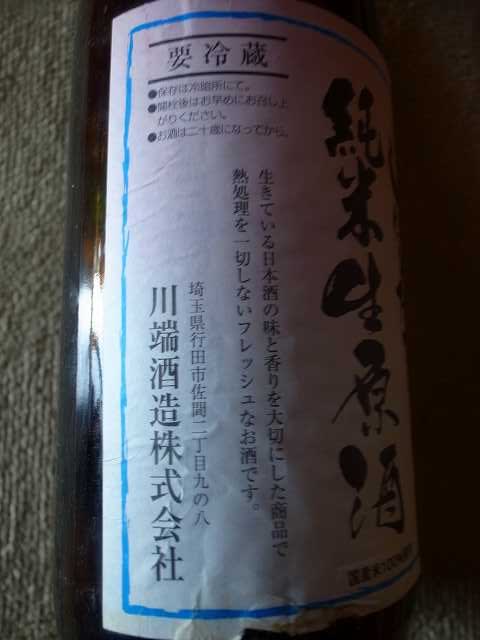 純米生原酒
国産米100%使用
要冷蔵
●保存は冷暗所にて。
●開栓後はお早めにお召し上
がりください。
●お酒は二十歳になってから。
生きている日本酒の味と香りを大切にした商品で
熱処理を一切しないフレッシュなお酒です。
埼玉県行田市佐間二丁目九の八
川端酒造株式会社